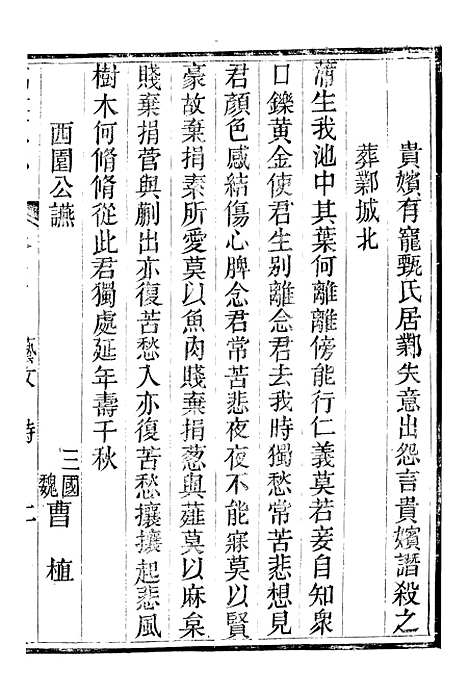 貴嬪有寵甄氏居鄴失意出怨言貴嬪譖殺之
葬鄴城北
蒲生我池中其葉何離離傍能行仁義莫若妾自知衆
口鑠黃金使君生别離念君去我時獨愁常苦悲想見
君顏色感結傷心脾念君常苦悲夜夜不能寐莫以賢
豪故棄捐素所愛莫以魚肉賤棄捐葱與薤莫以麻枲
賤棄捐菅與蒯出亦復苦愁入亦復苦愁攘攘起悲風
樹木何脩脩從此君獨處延年壽千秋
西園公讌
三國魏 曹植
藝文 詩 二